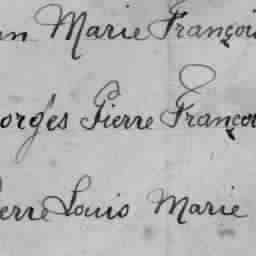 an Marie François
orges Pierre Franço
ierre Louis Marie